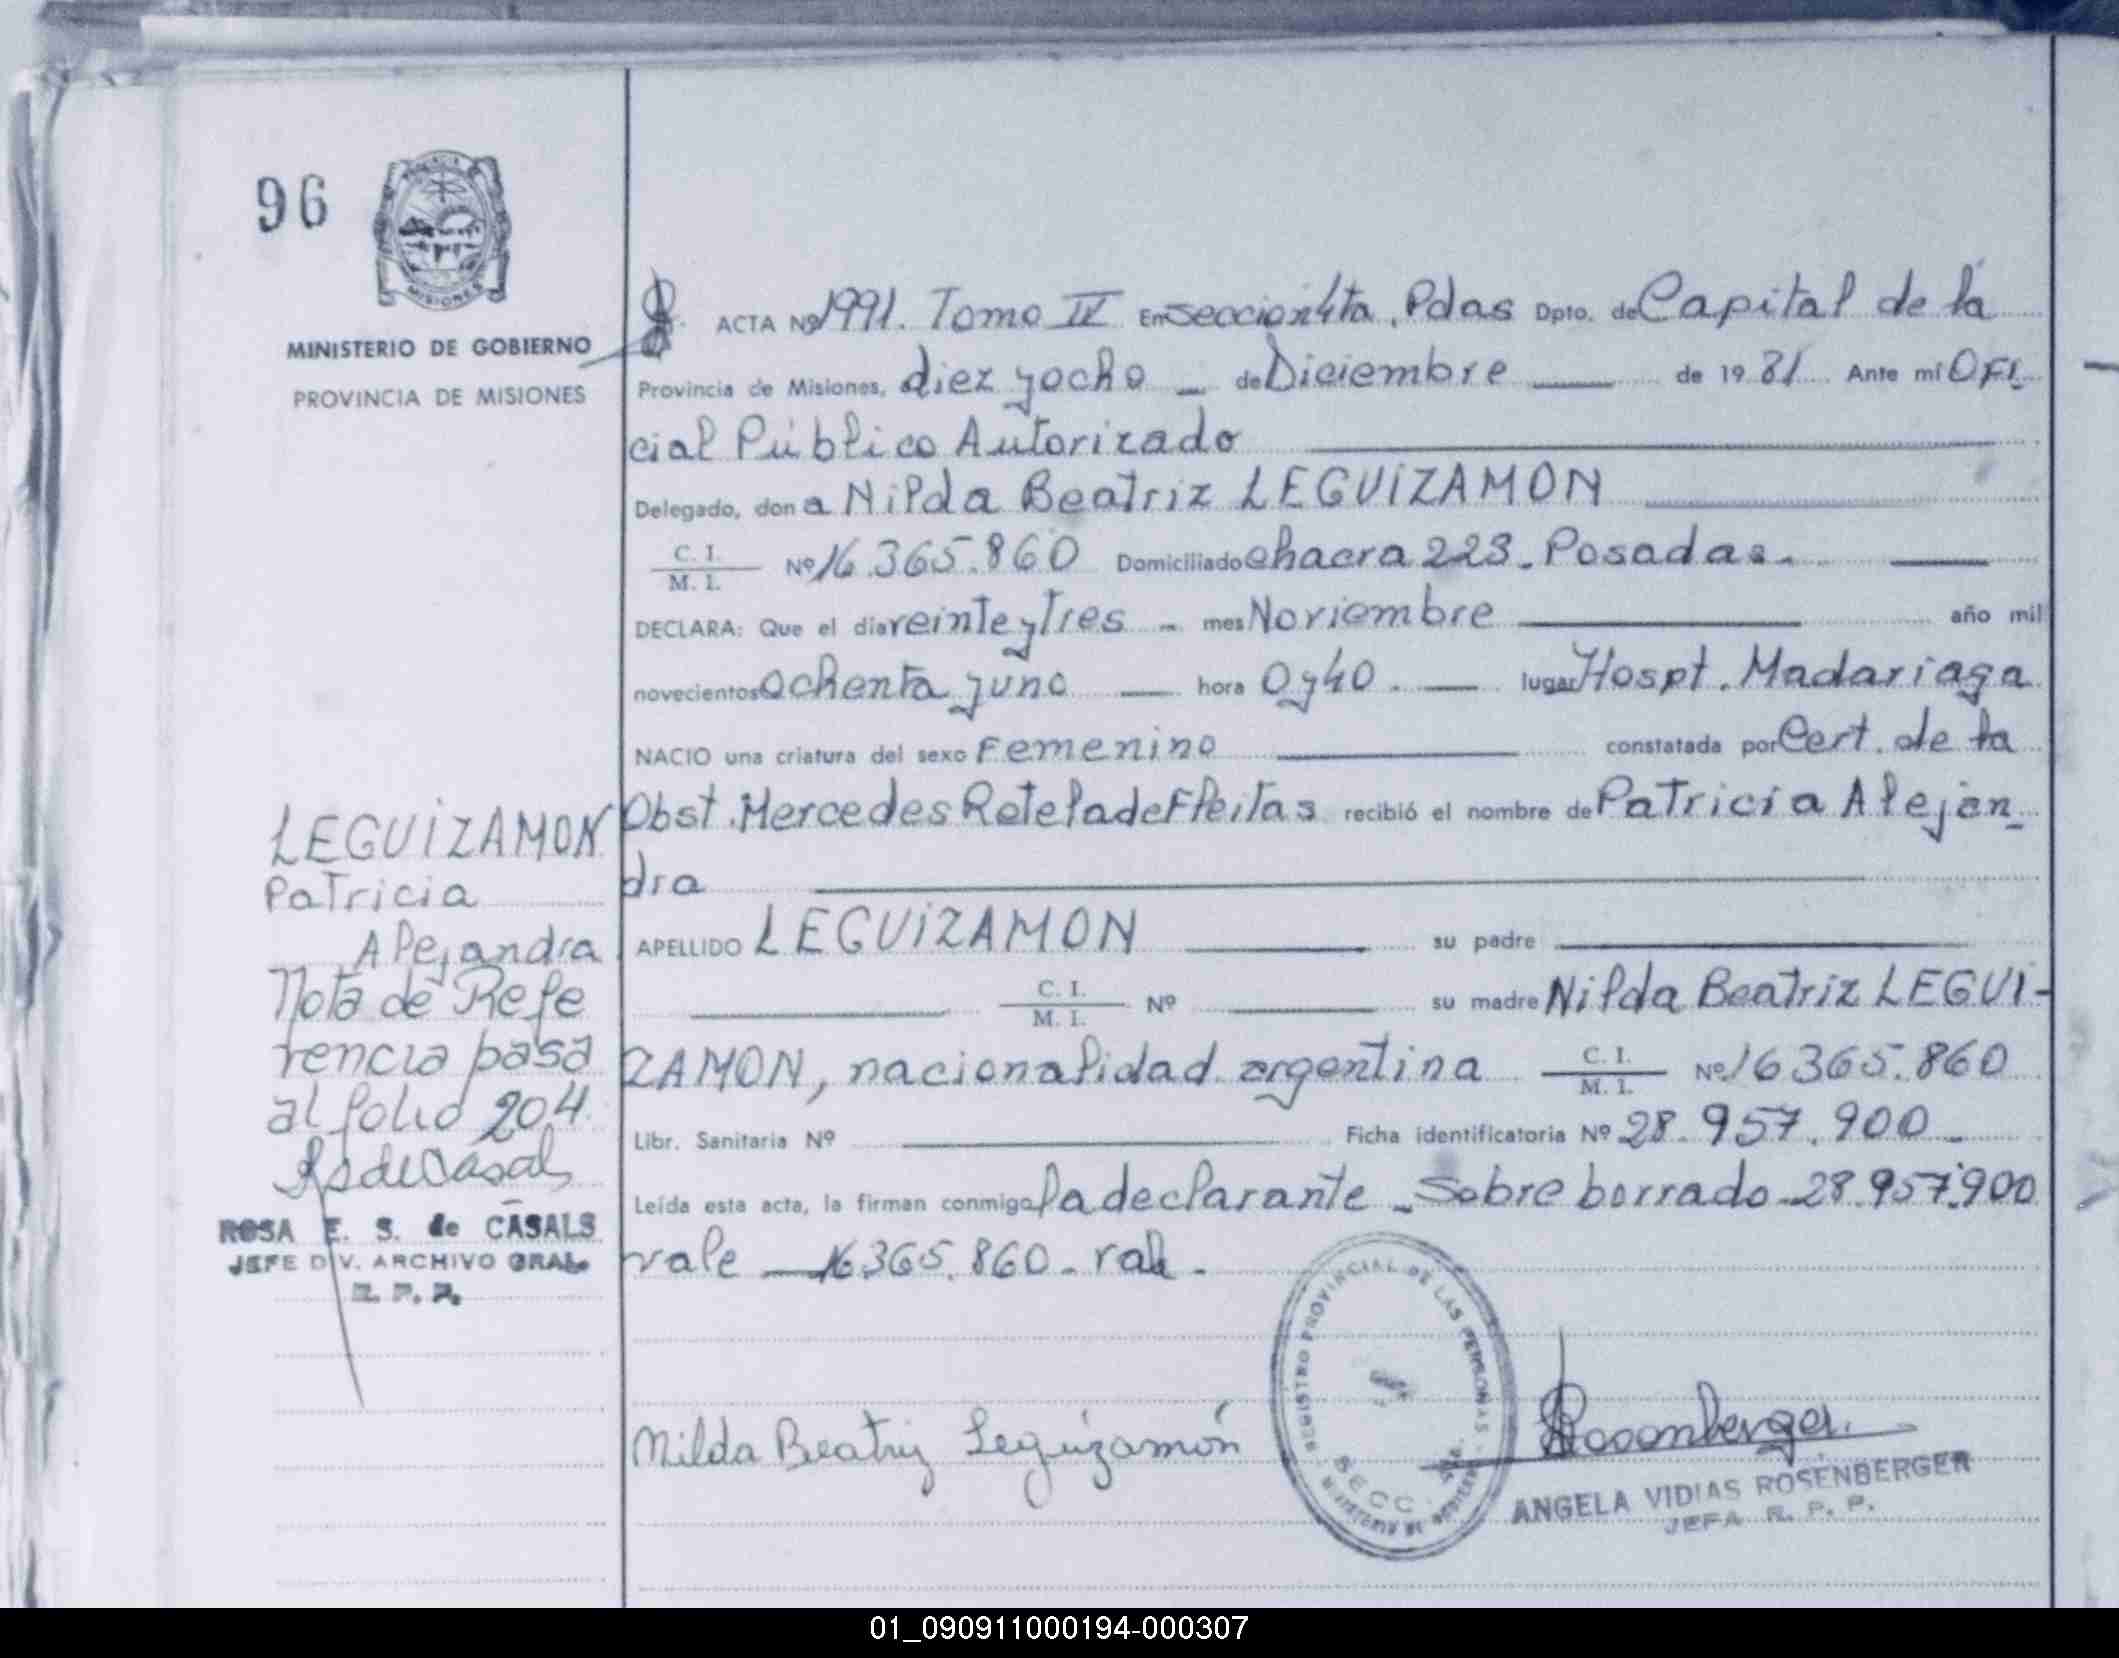 96
MINISTERIO DE GOBIERNO
PROVINCIA DE MISIONES
ACTA Nº 1991. Tomo IV En seccion 4ta. Pdas Dpto. de Capital de la
Provincia de Misiones, diez yocho de Diciembre de 1981 Ante mí OFI
cial Público Autorizado
Delegado, don a Nilda Beatriz LEGUIZAMON
C. I.
M. I. Nº 16.365.860 Domiciliado chacra 223. Posadas.
DECLARA: Que el dia veinte y tres mes Noviembre año mil
novecientos ochenta yuno hora 0 y 40. lugar Hospt. Madariaga
NACIO una criatura del sexo Femenino constatada por Cert. de la
Obst. Mercedes Retela de Fleitas recibió el nombre de Patricia Alejan
dra
APELLIDO LEGUIZAMON su padre
C. I.
M. I. Nº su madre Nilda Beatriz LEGUI-
ZAMON, nacionalidad argentina C. I.
M. I. Nº 16365.860
Libr. Sanitaria Nº Ficha identificatoria Nº 28.957.900
Leída esta acta, la firman conmigo la declarante - Sobre borrado - 28.957.900
vale - 16.365.860 - vale -
LEGUIZAMON
Patricia
Alejandra
Nota de Refe
rencia pasa
al folio 204.
RSdeCasals
ROSA E. S. de CASALS
JEFE DIV. ARCHIVO GRAL.
R. P. P.
Nilda Beatriz Leguizamón
REGISTRO PROVINCIAL DE LAS PERSONAS
SECC
Rosenberger
ANGELA VIDIAS ROSENBERGER
JEFA R. P. P.
MISIONES
01_090911000194-000307